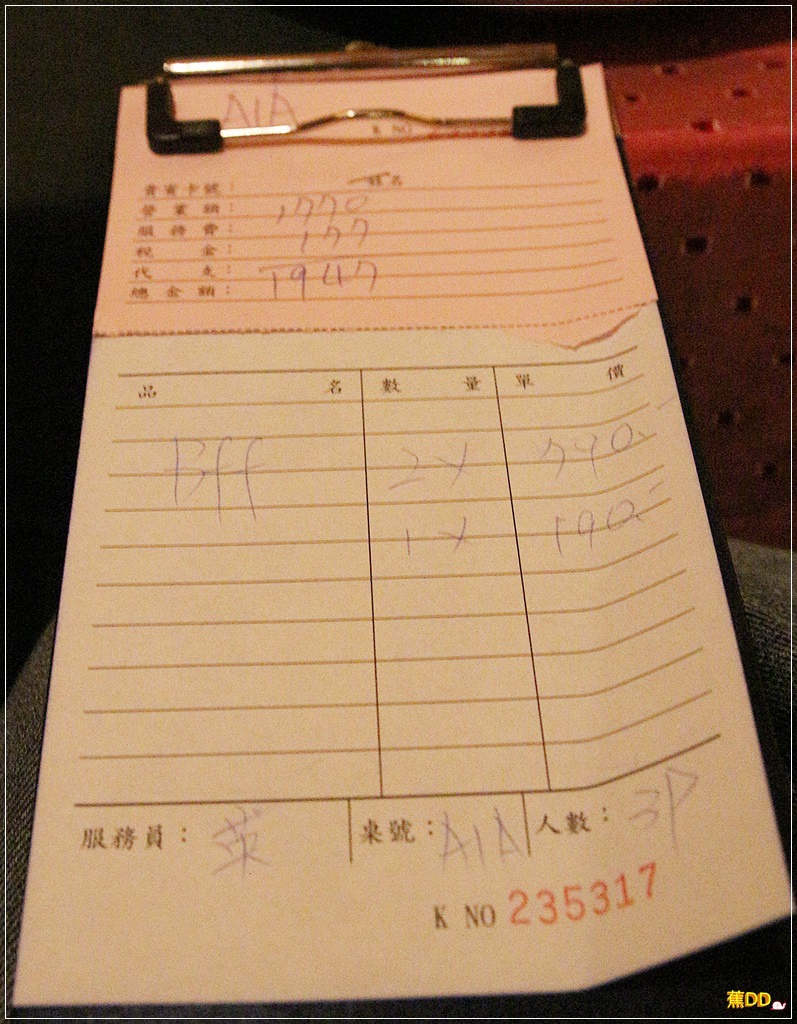 A1A
K NO
姓名
貴賓卡號：
營業額： 1770
服務費： 177
稅金：
代支：
總金額： 1947
品名 數量 單價
Bff 2x 790.-
1x 190.-
服務員： 菜 桌號： A1A 人數： 3P
K NO 235317
蕉DD